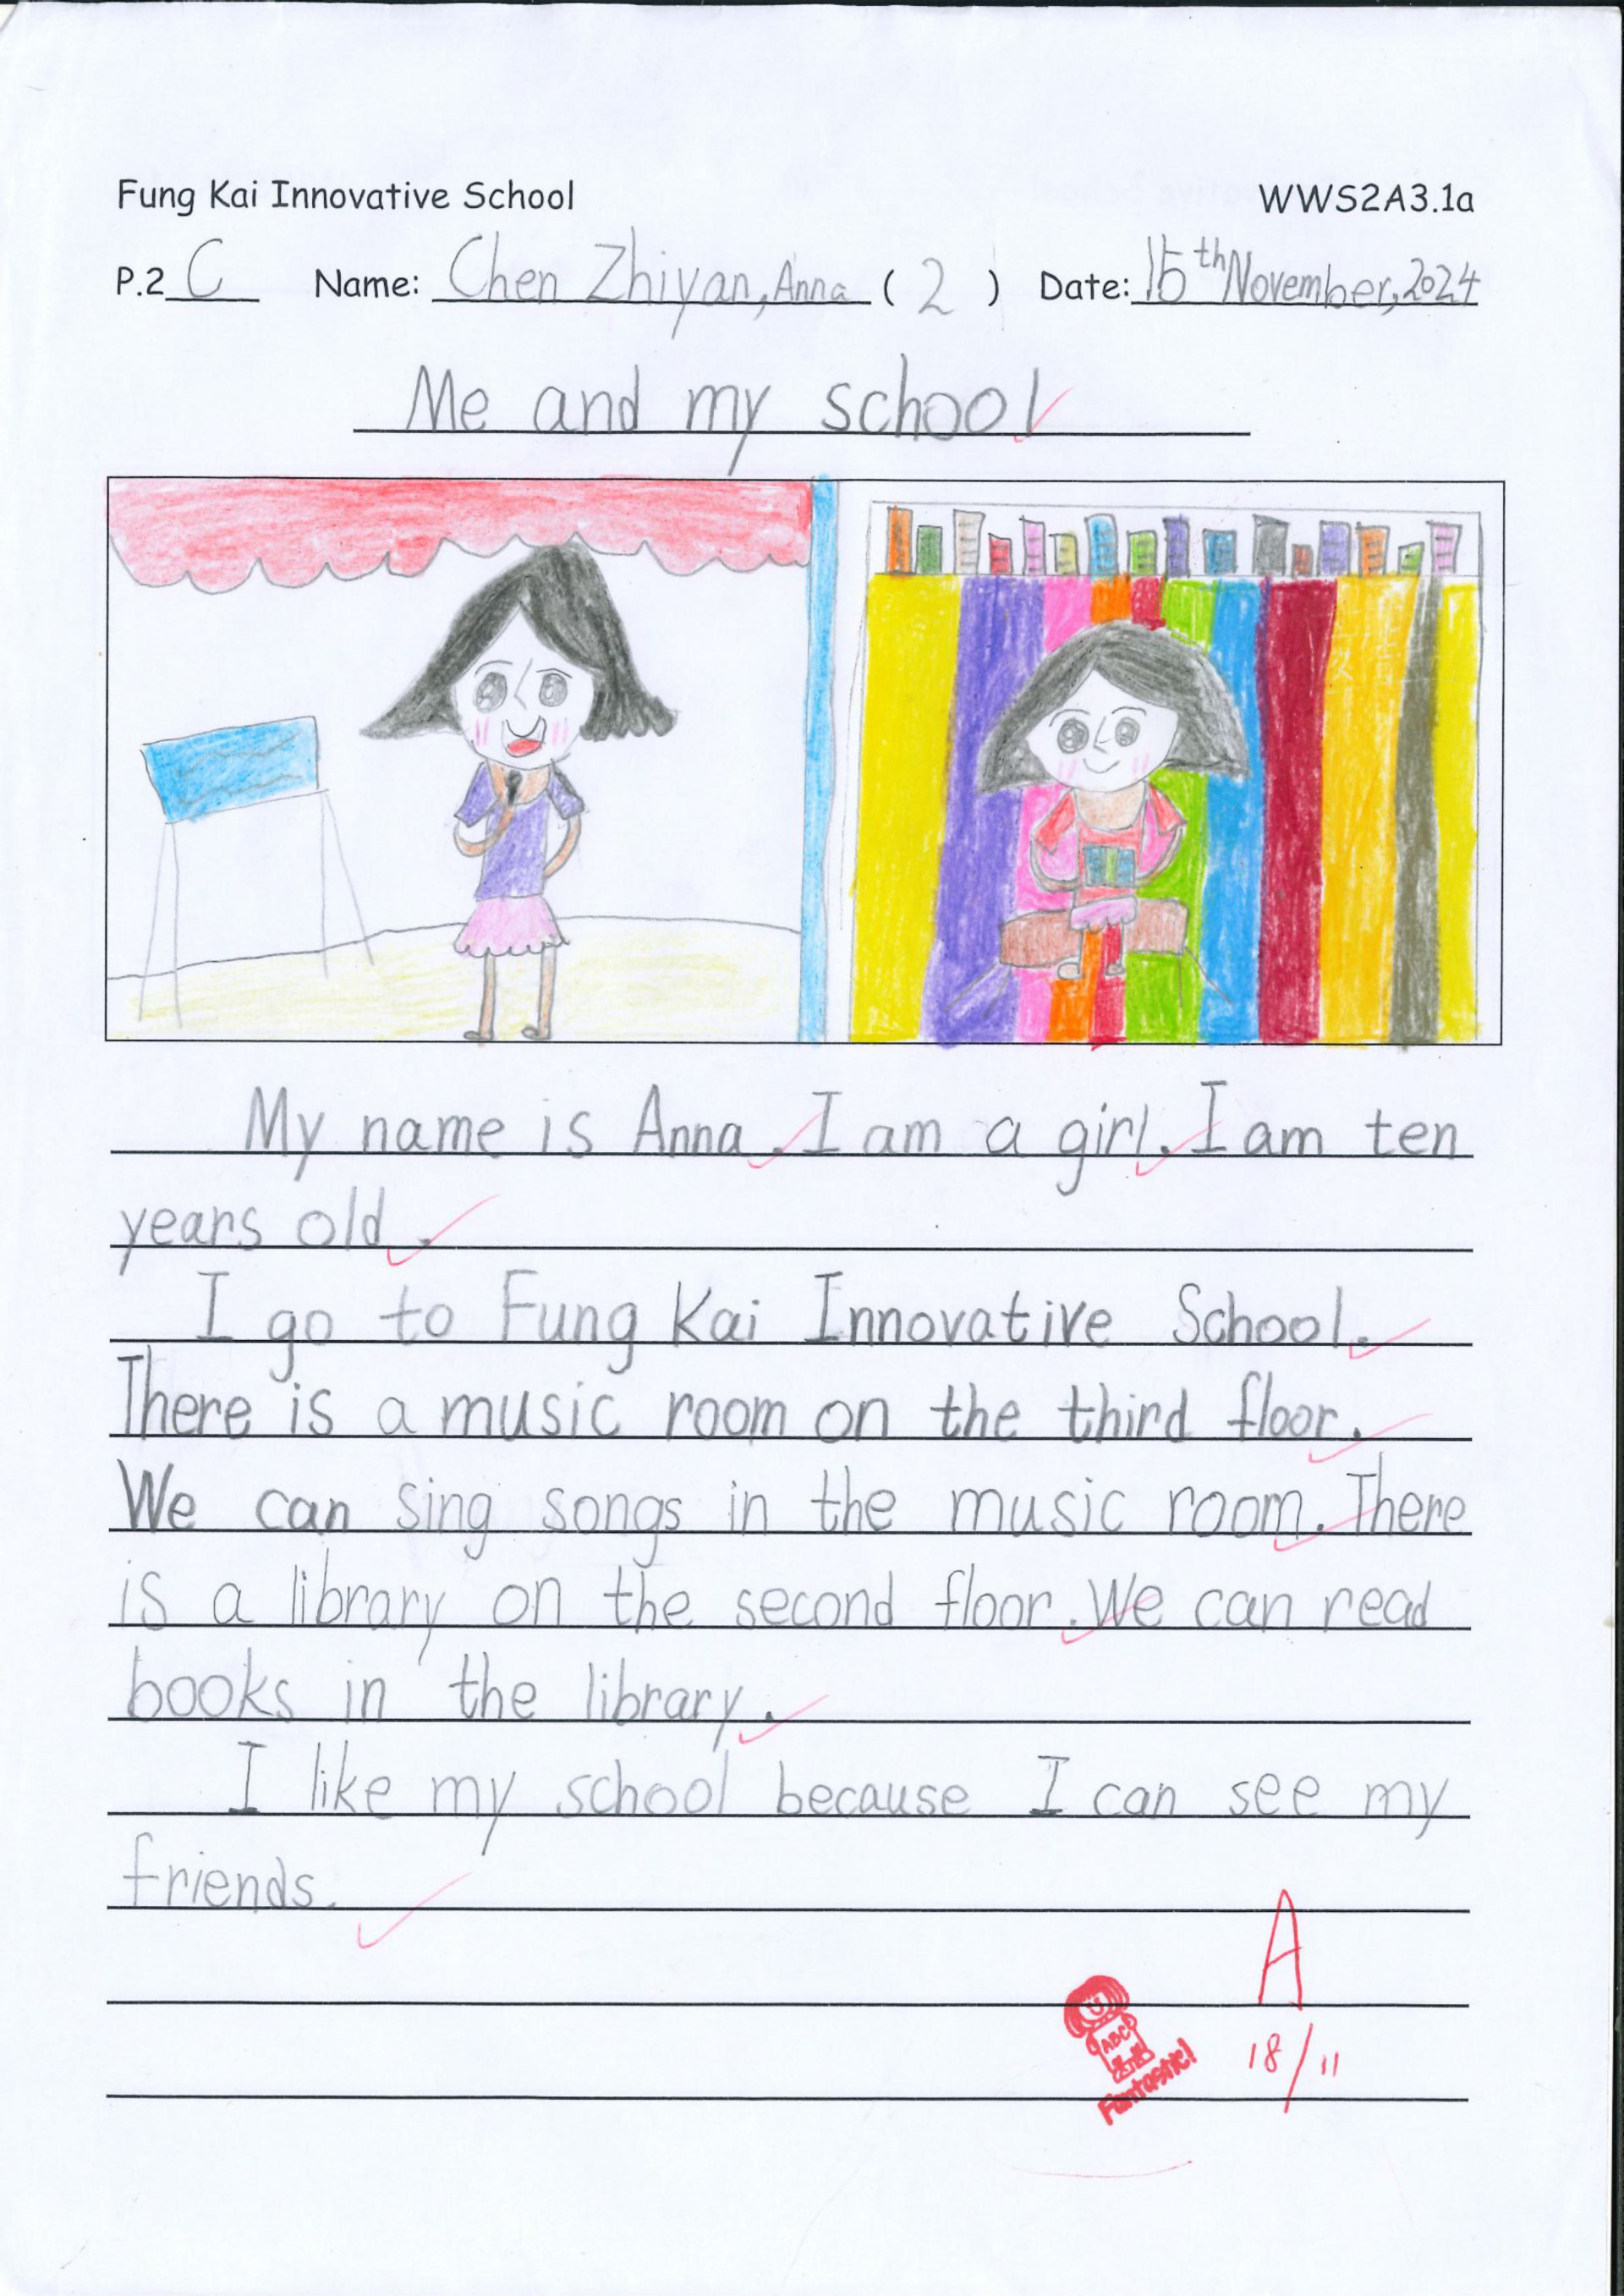 Fung Kai Innovative School WWS2A3.1a
P.2 C Name: Chen Zhiyan, Anna ( 2 ) Date: 15th November, 2024
Me and my school
My name is Anna. I am a girl. I am ten
years old.
I go to Fung Kai Innovative School.
There is a music room on the third floor.
We can sing songs in the music room. There
is a library on the second floor. We can read
books in the library.
I like my school because I can see my
friends.
A
ABC
Fantastic!
18/11